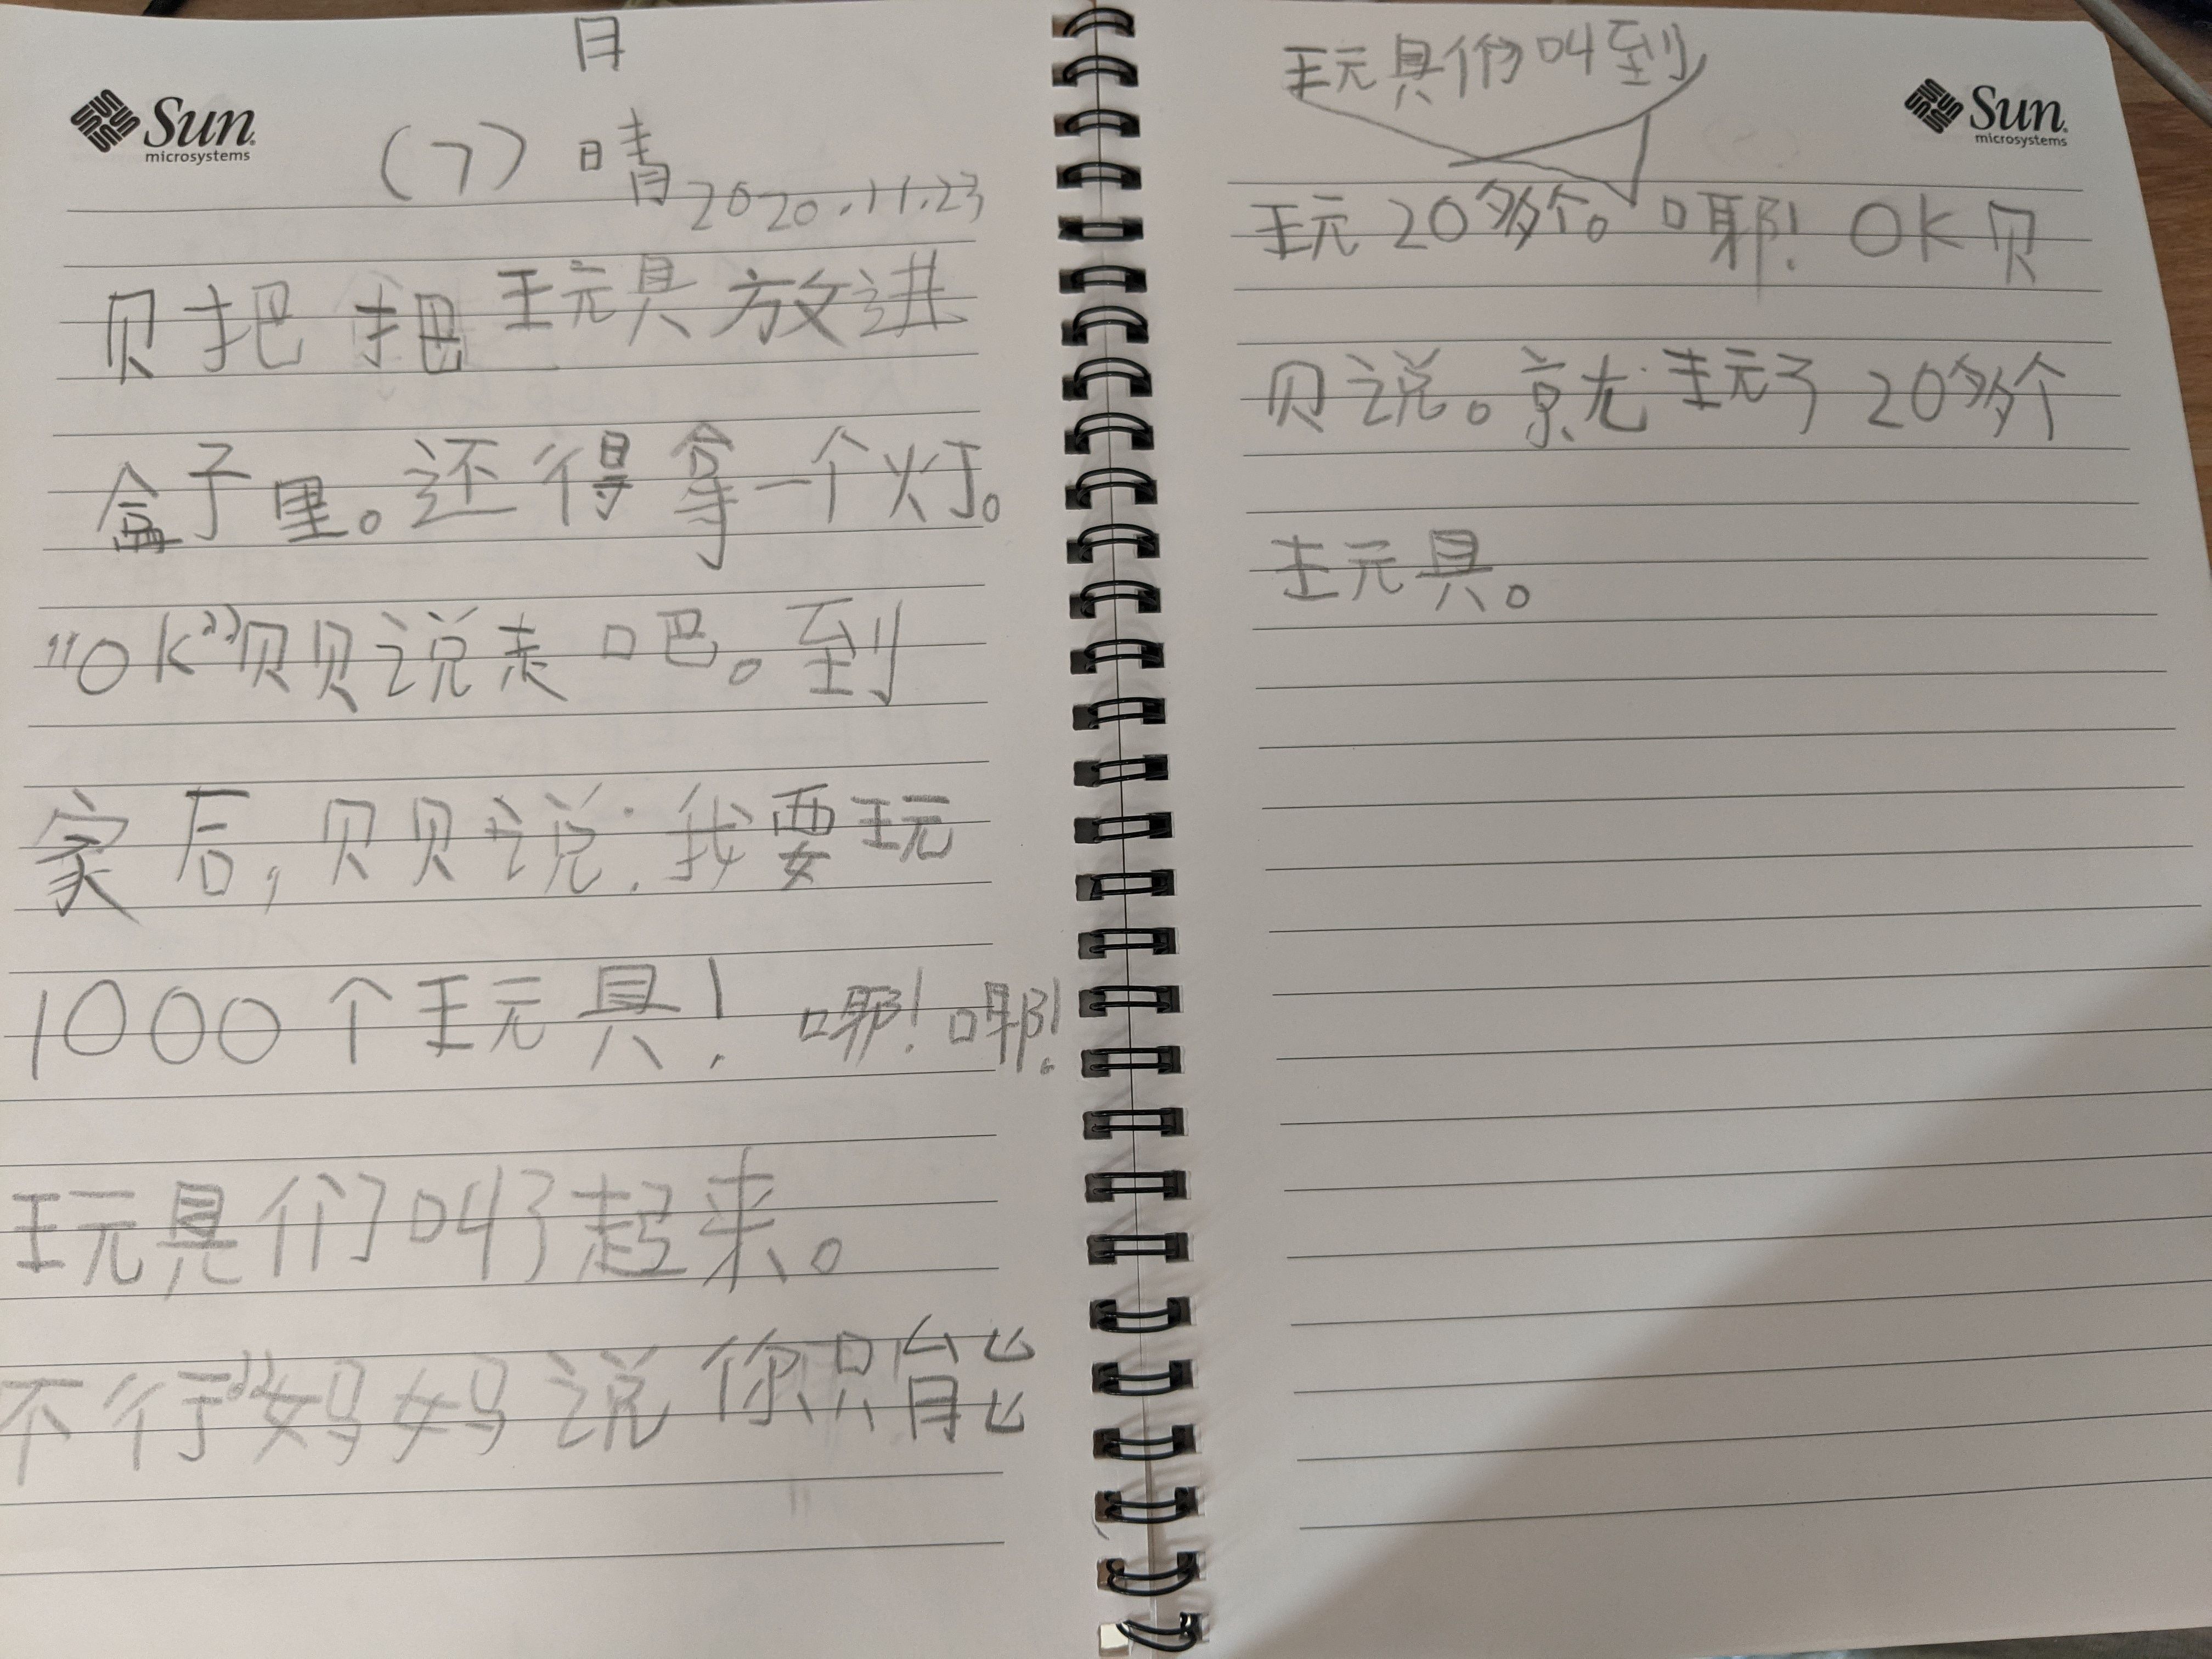 月
Sun
microsystems
(7) 晴 2020.11.23
贝把 把玩具放进
盒子里。还得拿一个灯。
"OK"贝贝说走吧。到
家后，贝贝说：我要玩
1000个玩具！ 耶！耶！
玩具们叫了起来。
不行"妈妈说你只能
玩具们叫到
Sun
microsystems
玩20多个。耶！OK贝
贝说。就玩了20多个
玩具。